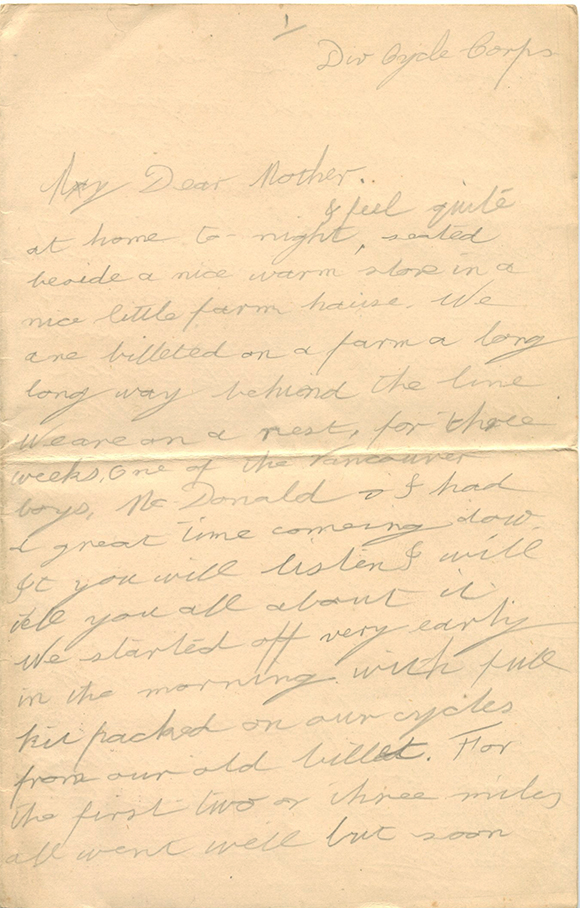 1
Div Cycle Corps
My Dear Mother..
I feel quite
at home to-night, seated
beside a nice warm stove in a
nice little farm hause. We
are billeted on a farm a long
long way behind the line
We are on a rest, for three
weeks, One of the Vancouver
boys, Mc Donald & I had
a great time comeing dow.
If you will listen I will
tell you all about it
We started off very early
in the morning with full
kit packed on our cycles
from our old billet. For
the first two or three miles
all went well but soon